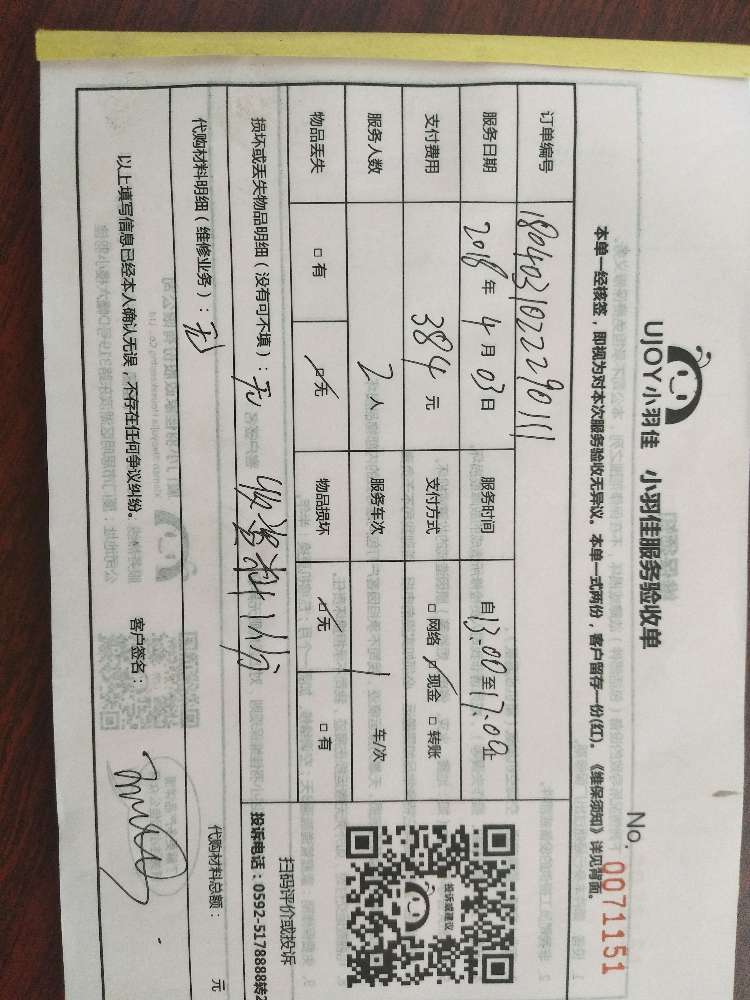 UJOY小羽佳 小羽佳服务验收单
No. 0071151
本单一经核签，即视为对本次服务验收无异议。本单一式两份，客户留存一份(红)。《维保须知》详见背面。
订单编号 180403102290111
服务日期 2018年4月03日 服务时间 自13:00至17:00止
支付费用 384元 支付方式 □网络 ☑现金 □转账
服务人数 2人 服务车次 1 车/次
物品丢失 □有 ☑无 物品损坏 ☑无 □有
损坏或丢失物品明细（没有可不填）：无 收资料1份
代购材料明细（维修业务）：无
代购材料总额： 元
投诉或建议
扫码评价或投诉
投诉电话：0592-5178888转2
以上填写信息已经本人确认无误，不存在任何争议纠纷。 客户签名：